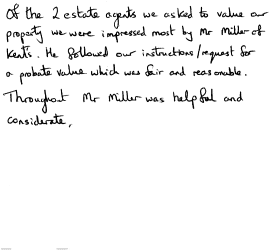 Of the 2 estate agents we asked to value our
property we were impressed most by Mr Miller of
Kents. He followed our instructions/request for
a probate value which was fair and reasonable.
Throughout Mr Miller was helpful and
considerate,